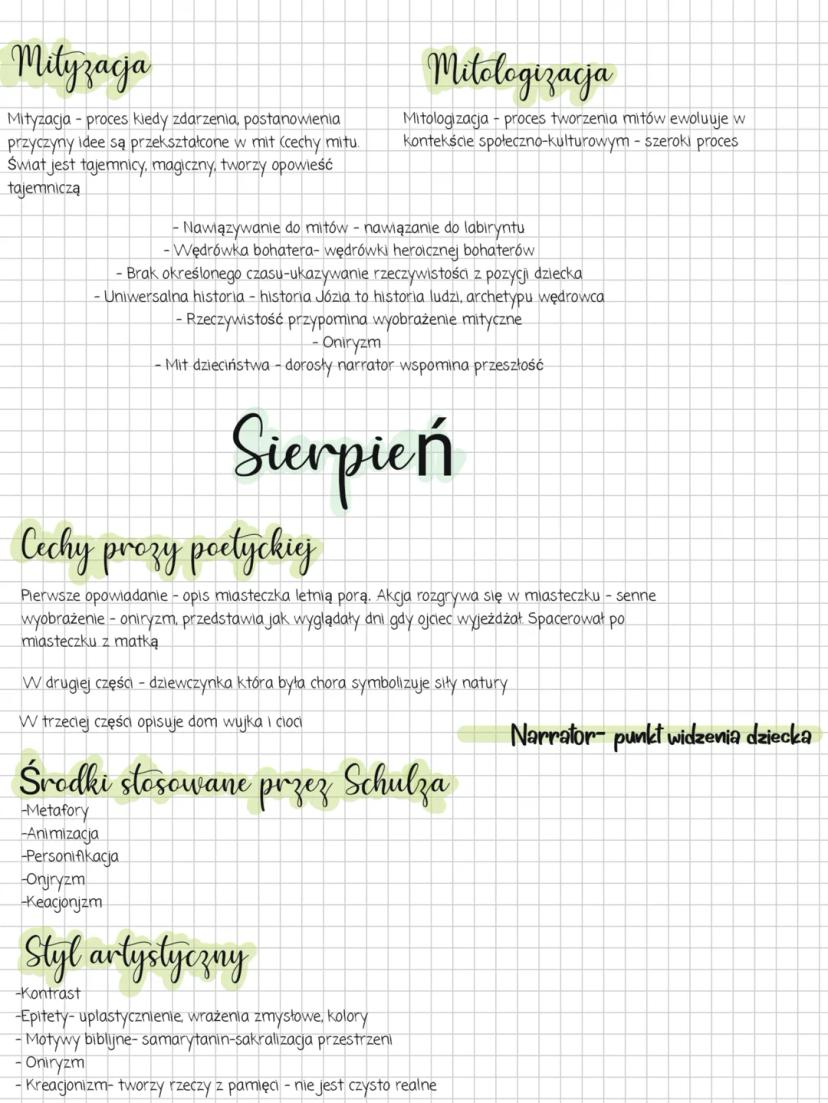 Mityzacja
Mityzacja - proces kiedy zdarzenia, postanowienia
przyczyny idee są przekształcone w mit (cechy mitu.
Świat jest tajemnicy, magiczny, tworzy opowieść
tajemniczą
Mitologizacja
Mitologizacja - proces tworzenia mitów ewoluuje w
kontekście społeczno-kulturowym - szeroki proces
- Nawiązywanie do mitów - nawiązanie do labiryntu
- Wędrówka bohatera- wędrówki heroicznej bohaterów
- Brak określonego czasu-ukazywanie rzeczywistości z pozycji dziecka
- Uniwersalna historia - historia Józia to historia ludzi, archetypu wędrowca
- Rzeczywistość przypomina wyobrażenie mityczne
- Oniryzm
- Mit dzieciństwa - dorosły narrator wspomina przeszłość
Sierpień
Cechy prozy poetyckiej
Pierwsze opowiadanie - opis miasteczka letnią porą. Akcja rozgrywa się w miasteczku - senne
wyobrażenie - oniryzm, przedstawia jak wyglądały dni gdy ojciec wyjeżdżał. Spacerował po
miasteczku z matką
W drugiej części - dziewczynka która była chora symbolizuje siły natury
W trzeciej części opisuje dom wujka i cioci
Narrator- punkt widzenia dziecka
Środki stosowane przez Schulza
-Metafory
-Animizacja
-Personifikacja
-Onjryzm
-Keacjonjzm
Styl artystyczny
-Kontrast
-Epitety- uplastycznienie, wrażenia zmysłowe, kolory
- Motywy biblijne- samarytanin-sakralizacja przestrzeni
- Oniryzm
- Kreacjonizm- tworzy rzeczy z pamięci - nie jest czysto realne